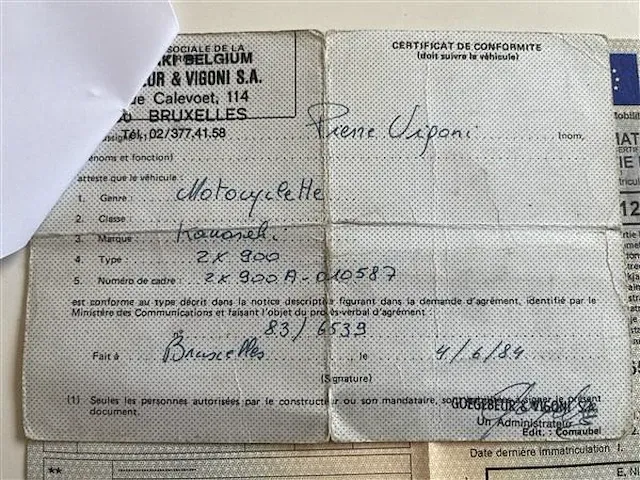 SOCIALE DE LA
CERTIFICAT DE CONFORMITE
(doit suivre le véhicule)
KI BELGIUM
EUR & VIGONI S.A.
ue Calevoet, 114
0 BRUXELLES
Tél. 02/377.41.58
Pierre Vigoni (nom,
énoms et fonction)
atteste que le véhicule :
1. Genre : Motocyclette
2. Classe :
3. Marque : Kawasaki
4 Type : ZX 900
5. Numéro de cadre : ZX 900 A-010587
est conforme au type décrit dans la notice descriptive figurant dans la demande d'agrément, identifié par le
Ministère des Communications et faisant l'objet du procès-verbal d'agrément :
n° 83/6539
Fait à Bruxelles le 4/6/84
(Signature)
(1) Seules les personnes autorisées par le constructeur ou son mandataire, présent
document.
GOEGEBEUR & VIGONI S.A.
Un Administrateur
Edit. : Comaubel
Date dernière immatriculation
**
E. N
12